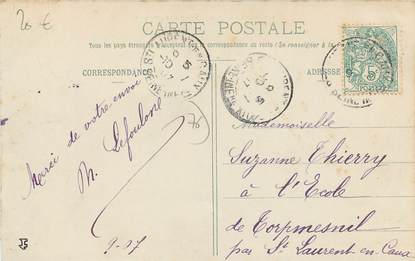 20 €
CARTE POSTALE
Tous les pays étrangers n'acceptent pas la correspondance au recto
CORRESPONDANCE
ADRESSE
76
Merci de votre envoi
M. Lefoulon
9-07
Mademoiselle
Suzanne Thierry
à l'Ecole
de Torpmesnil
par St Laurent-en-Caux